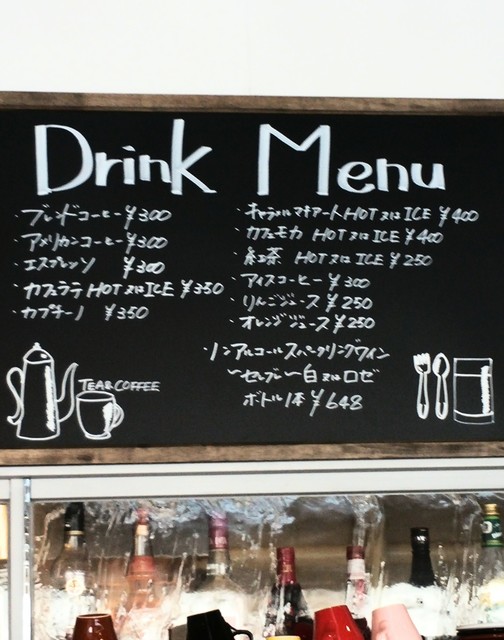 Drink Menu
・ブレンドコーヒー ¥300
・アメリカンコーヒー ¥300
・エスプレッソ ¥300
・カフェラテ HOT又はICE ¥350
・カプチーノ ¥350
・キャラメルマキアート HOT又はICE ¥400
・カフェモカ HOT又はICE ¥400
・紅茶 HOT又はICE ¥250
・アイスコーヒー ¥300
・りんごジュース ¥250
・オレンジジュース ¥250
・ノンアルコールスパークリングワイン
〜セレブレ〜白又はロゼ
ボトル1本 ¥648
TEA&COFFEE